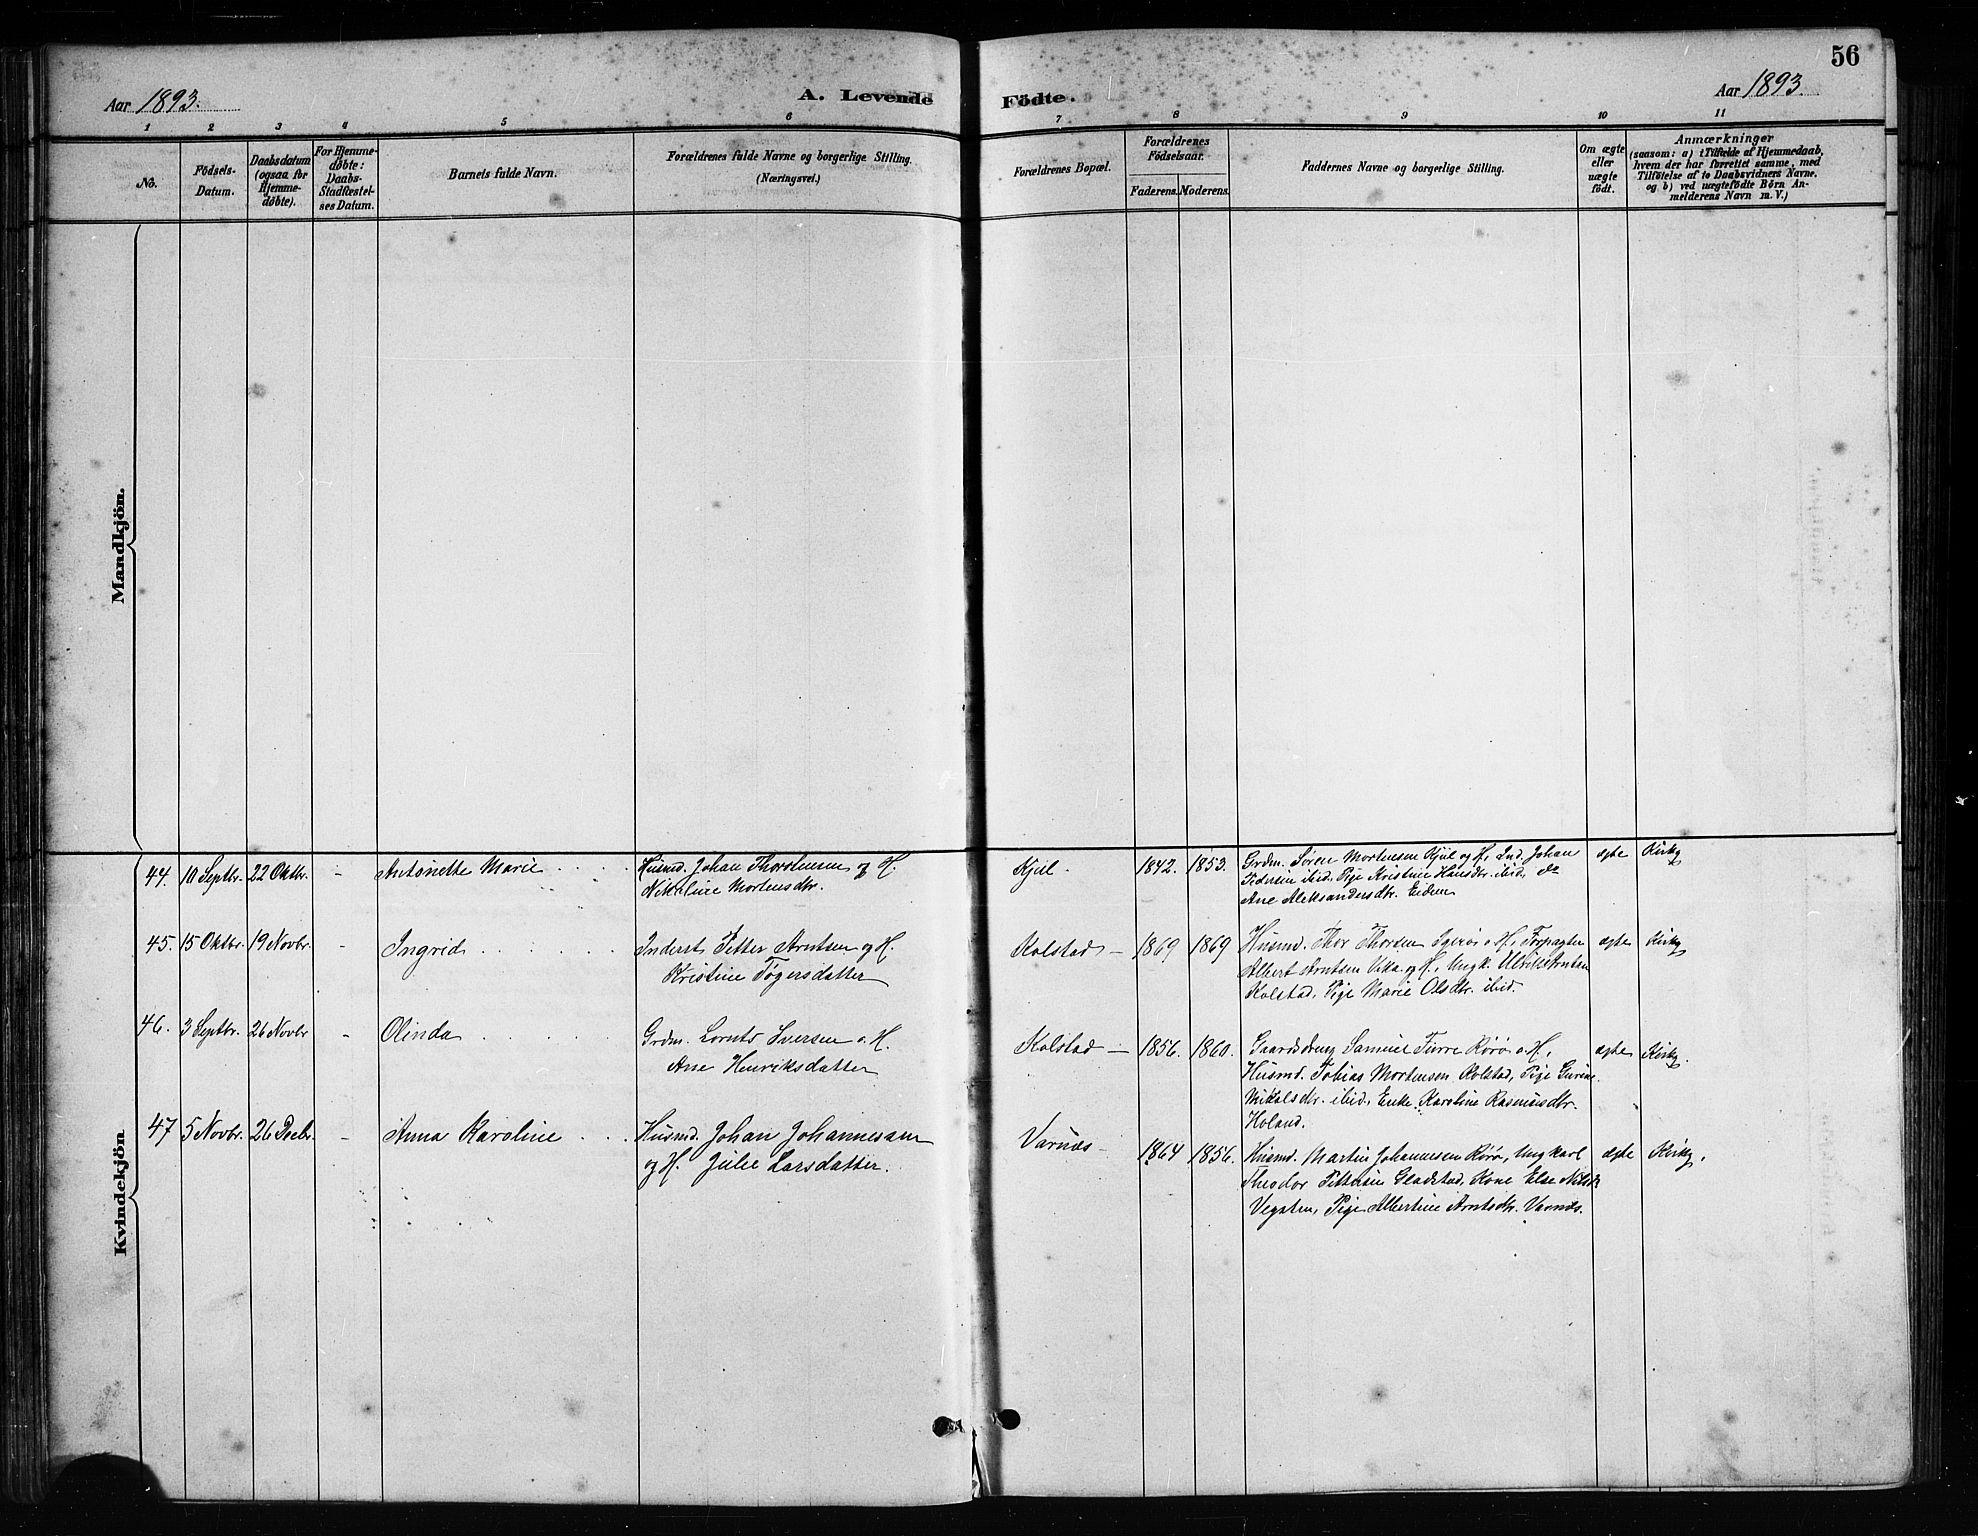 56
Aar 1893.
A. Levende
Födte.
Aar 1893.
1 2 3 4 5 6 7 8 9 10 11
No.
Födsels-
Datum.
Daabsdatum
(ogsaa for
Hjemme-
döbte).
For Hjemme-
döbte:
Daabs-
Stadfæstel-
ses Datum.
Barnets fulde Navn.
Forældrenes fulde Navne og borgerlige Stilling.
(Næringsvei.)
Forældrenes Bopæl.
Forældrenes
Födselsaar.
Faderens.
Moderens.
Faddernes Navne og borgerlige Stilling.
Om ægte
eller
uægte
født.
Anmærkninger
(saasom: a) i Tilfælde af Hjemmedaab,
hvem der har forrettet samme, med
Tilføielse af to Daabsvidners Navne,
og b) ved uægtefødte Børn An-
melderens Navn m. V.)
Mandkjön.
Kvindekjön
44. 10 Septbr. 22 Oktbr. - Antonette Marie
Husmd. Johan Thorstensen og H.
Nikoline Mortensdtr.
Kjul. 1842. 1853.
Grdm. Sören Mortensen Kjul og H., Ind. Johan
Pedersen ibid, Pige Kristine Hansdtr. ibid, do
Ane Aleksandersdtr. Eidem
ægte Kirkg
45. 15 Oktbr. 19 Novbr. - Ingrid
Inderst Petter Arntsen og H.
Kristine Tøgersdatter
Kolstad - 1869 1869
Husmd. Thor Thorsen Igerö o. H., Forpagter
Albert Arntsen Vika og H., Ungk. Ulrik Arntsen
Kolstad, Pige Marie Olsdtr. ibid.
ægte Kirkg
46. 3 Septbr. 26 Novbr - Olinda
Grdm. Lornts Iversen o. H.
Ane Henriksdatter
Kolstad - 1856. 1860.
Gaardsdreng Samuel Rørø o. H.,
Husmd. Tobias Mortensen Kolstad, Pige Gurine
Nikolsdtr. ibid, Enke Karoline Rasmusdtr.
Holand.
ægte Kirkg.
47 5 Novbr. 26 Decbr. - Anna Karoline
Husmd. Johan Johannessen
og H. Julie Larsdatter.
Varnæs - 1864 1856.
Husmd. Martin Johannesen Rørø, Ungkarl
Theodor Pettersen Gladstad, Kone Else Nilsd.
Vegsten, Pige Albertine Arntsdtr. Varnæs.
ægte Kirkg.